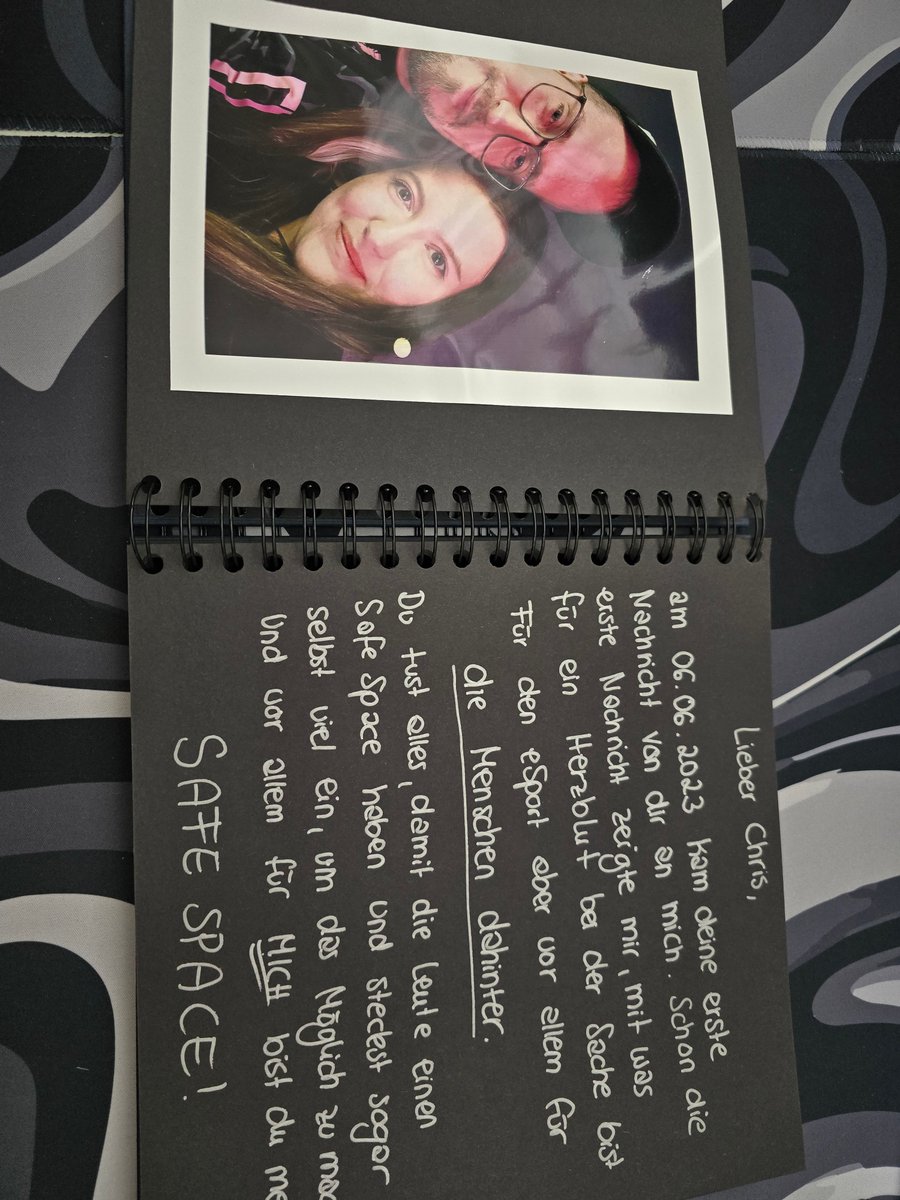 Lieber Chris,
am 06.06.2023 kam deine erste
Nachricht von dir an mich. Schon die
erste Nachricht zeigte mir, mit was
für ein Herzblut bei der Sache bist
Für den eSport aber vor allem für
die Menschen dahinter.
Du tust alles, damit die Leute einen
Safe Space haben und steckst sogar
selbst viel ein, um das Möglich zu
Und vor allem für MICH bist du
SAFE SPACE!